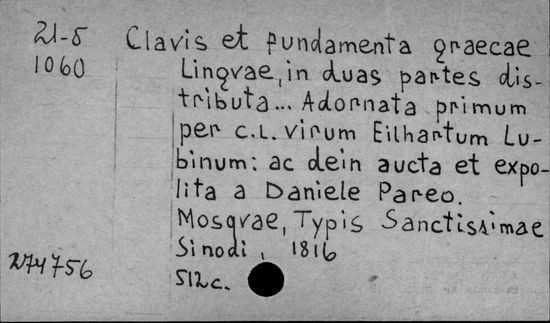 21-5 Clavis et fundamenta graecae
1060 Lingvae, in duas partes dis-
tributa... Adornata primum
per c.L. virum Eilhartum Lu-
binum: ac dein aucta et expo-
lita a Daniele Pareo.
Mosqvae, Typis Sanctissimae
Sinodi, 1816
274756
512c.